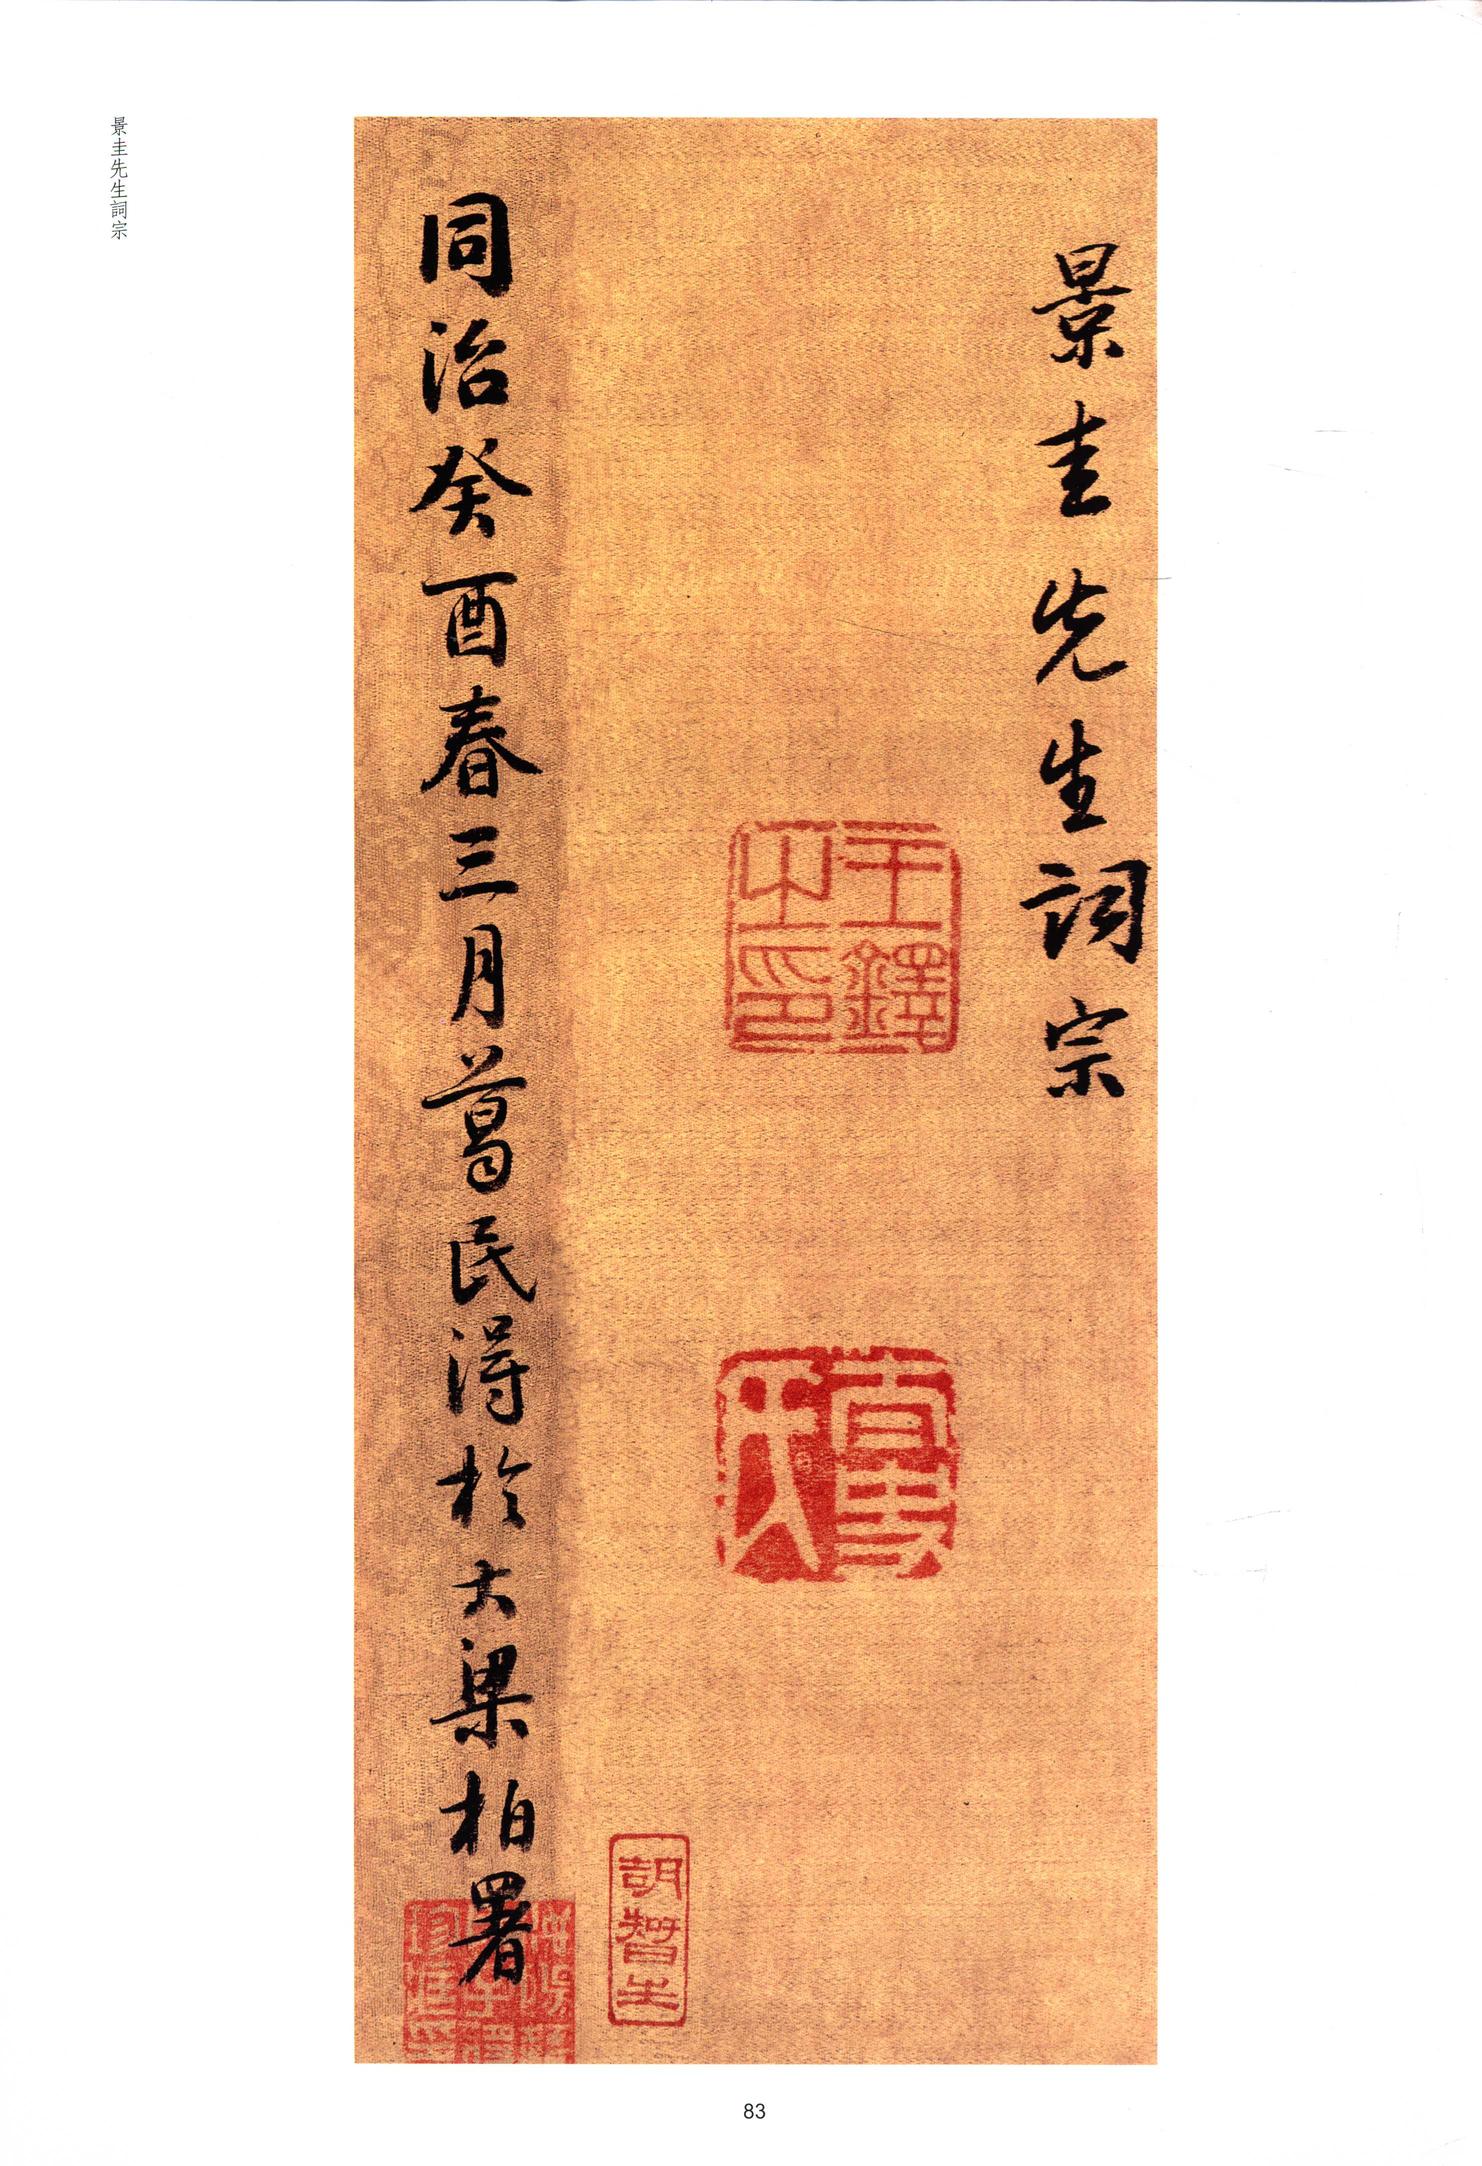 景圭先生詞宗
王鐸之印
同治癸酉春三月蒿民得於大梁柏署
景圭先生詞宗
83